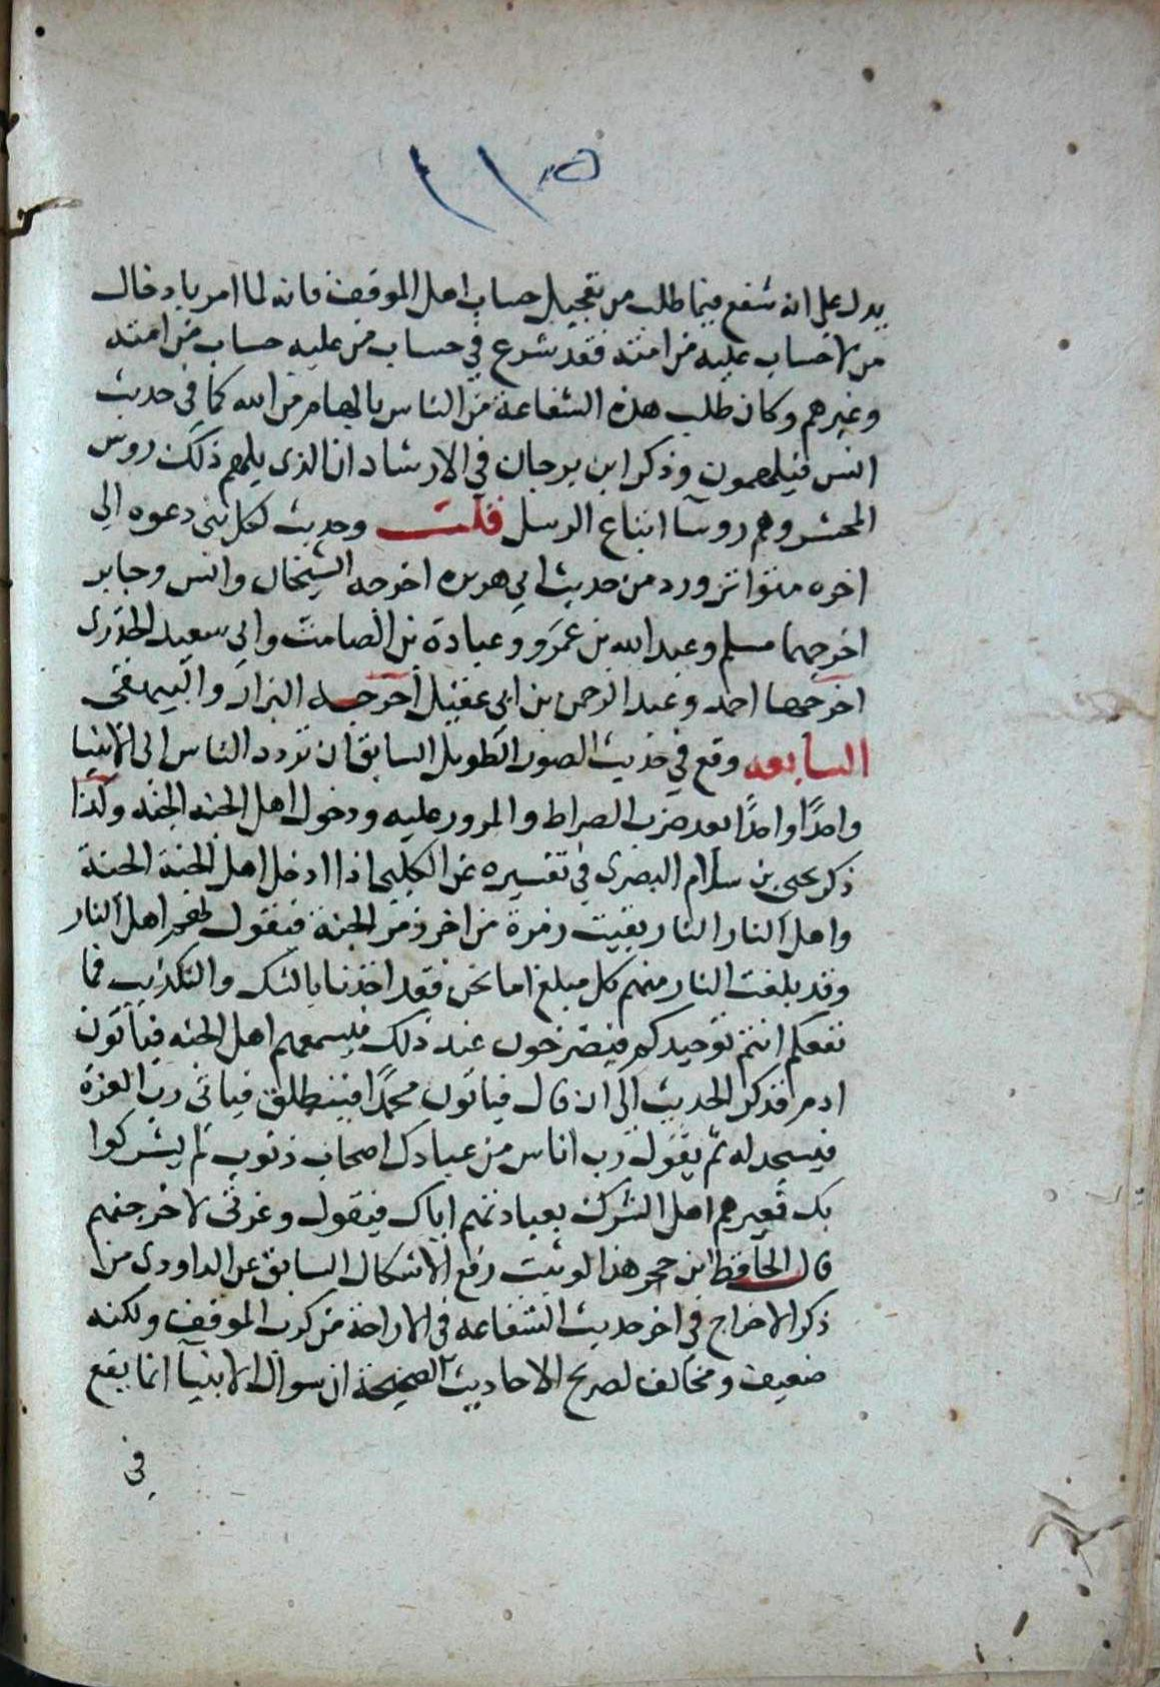 ١١٥
يدل على انه شفع فيما طلب من تعجيل حساب اهل الموقف فانه لما امر بادخال
من لا حساب عليه من امته فقد شرع في حساب من عليه حساب من امته
وغيرهم وكان طلب هذه الشفاعة من الناس بالهام من الله كما في حديث
انس فيلهمون وذكر ابن برجان في الارشاد ان الذى يلهم ذلك روس
المحشر وهم روسآ اتباع الرسل قلت وحديث لكل نبى دعوه الى
اخره متواتر ورد من حديث ابي هريره اخرجه الشيخان وانس وجابر
اخرجهما مسلم وعبد الله بن عمرو وعبادة بن الصامت وابي سعيد الخدرى
اخرجها احمد وعبد الرحمن بن ابي عقيل اخرجه البزار والبيهقى
السابعه وقع في حديث الصور الطويل السابق ان تردد الناس الى الانبيا
واحدًا واحدًا بعد ضرب الصراط والمرور عليه ودخول اهل الجنه الجنه وكذا
ذكر يحيى بن سلام البصرى في تفسيره عن الكلبى اذا ادخل اهل الجنة الجنة
واهل النار النار بقيت زمرة من اخر زمر الجنة فيقول لهم اهل النار
وقد بلغت النار منهم كل مبلغ اما نحن فقد اخذنا بالشك والتكذيب فما
نفعكم انتم توحيدكم فيصرخون عند ذلك فيسمعهم اهل الجنه فياتون
ادم فذكر الحديث الى ان قال فياتون محمدًا فينطلق فياتى رب العزة
فيسجد له ثم يقول رب اناس من عبادك اصحاب ذنوب لم يشركوا
بك فعيرهم اهل الشرك بعبادتهم اياك فيقول وعزتى لاخرجنهم
قال الحافظ ابن حجر هذا لو ثبت رفع الاشكال السابق عن الداودى من
ذكر الاخراج في اخر حديث الشفاعه في الاراحة من كرب الموقف ولكنه
ضعيف ومخالف لصريح الاحاديث الصحيحة ان سوال الانبيآ انما يقع
في